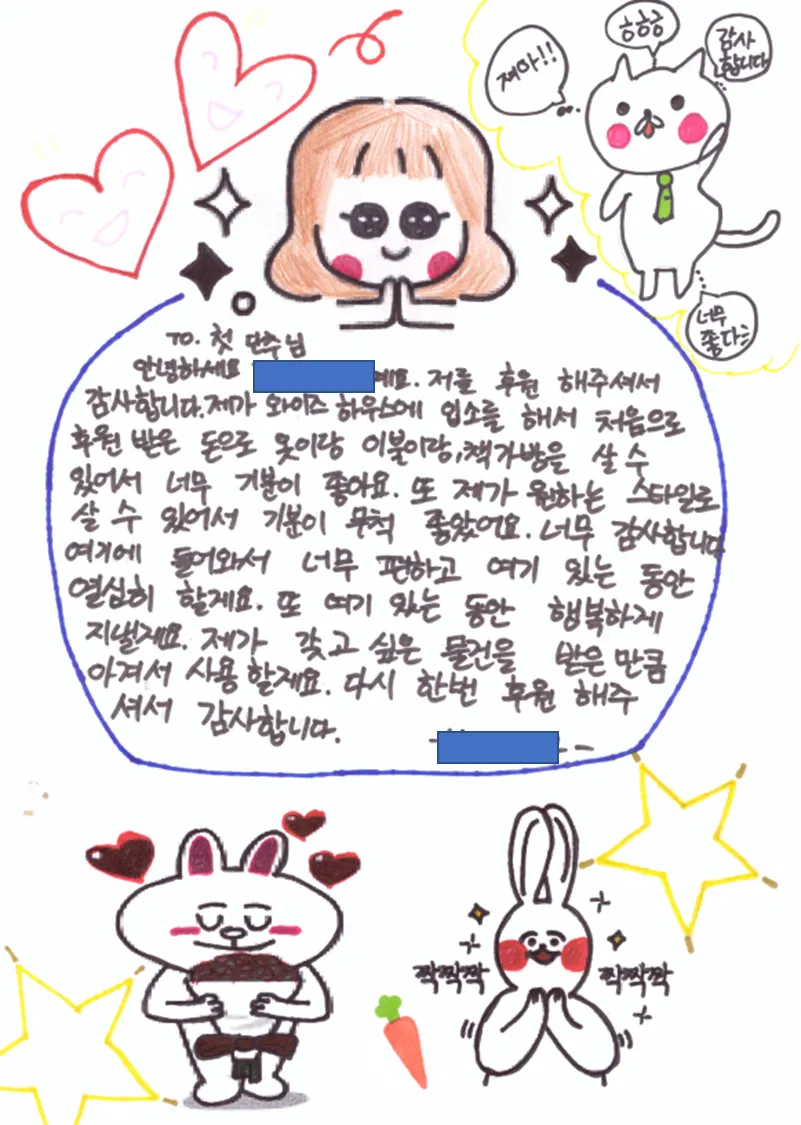 흐흐흐
감사
합니다
져아!!
너무
좋다
TO. 첫 단추님
안녕하세요 예요. 저를 후원 해주셔서
감사합니다. 제가 와이즈 하우스에 입소를 해서 처음으로
후원 받은 돈으로 옷이랑 이불이랑, 책가방을 살 수
있어서 너무 기분이 좋아요. 또 제가 원하는 스타일로
살 수 있어서 기분이 무척 좋았어요. 너무 감사합니다
여기에 들어와서 너무 편하고 여기 있는 동안
열심히 할게요. 또 여기 있는 동안 행복하게
지낼게요. 제가 갖고 싶은 물건을 받은 만큼
아껴서 사용 할게요. 다시 한번 후원 해주
셔서 감사합니다.
짝짝짝 짝짝짝